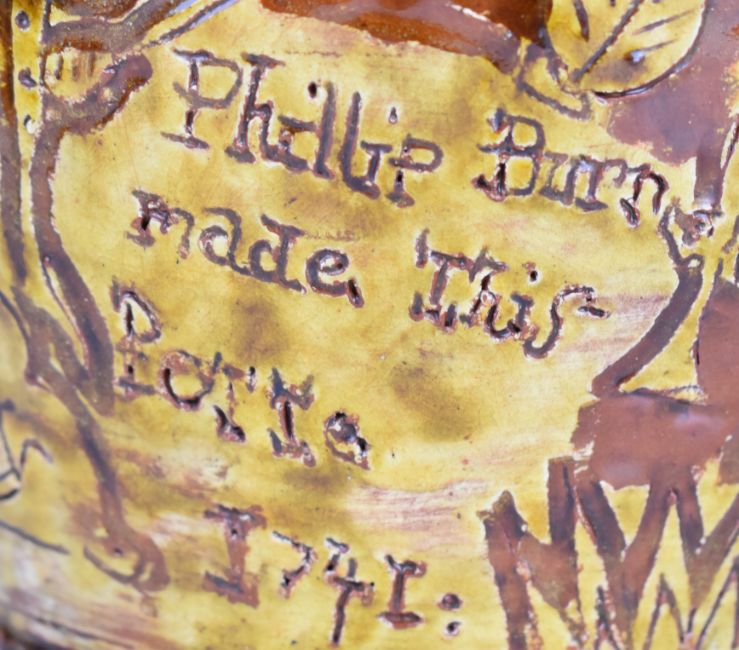 Phillip Burn
made This
Potte
1741: